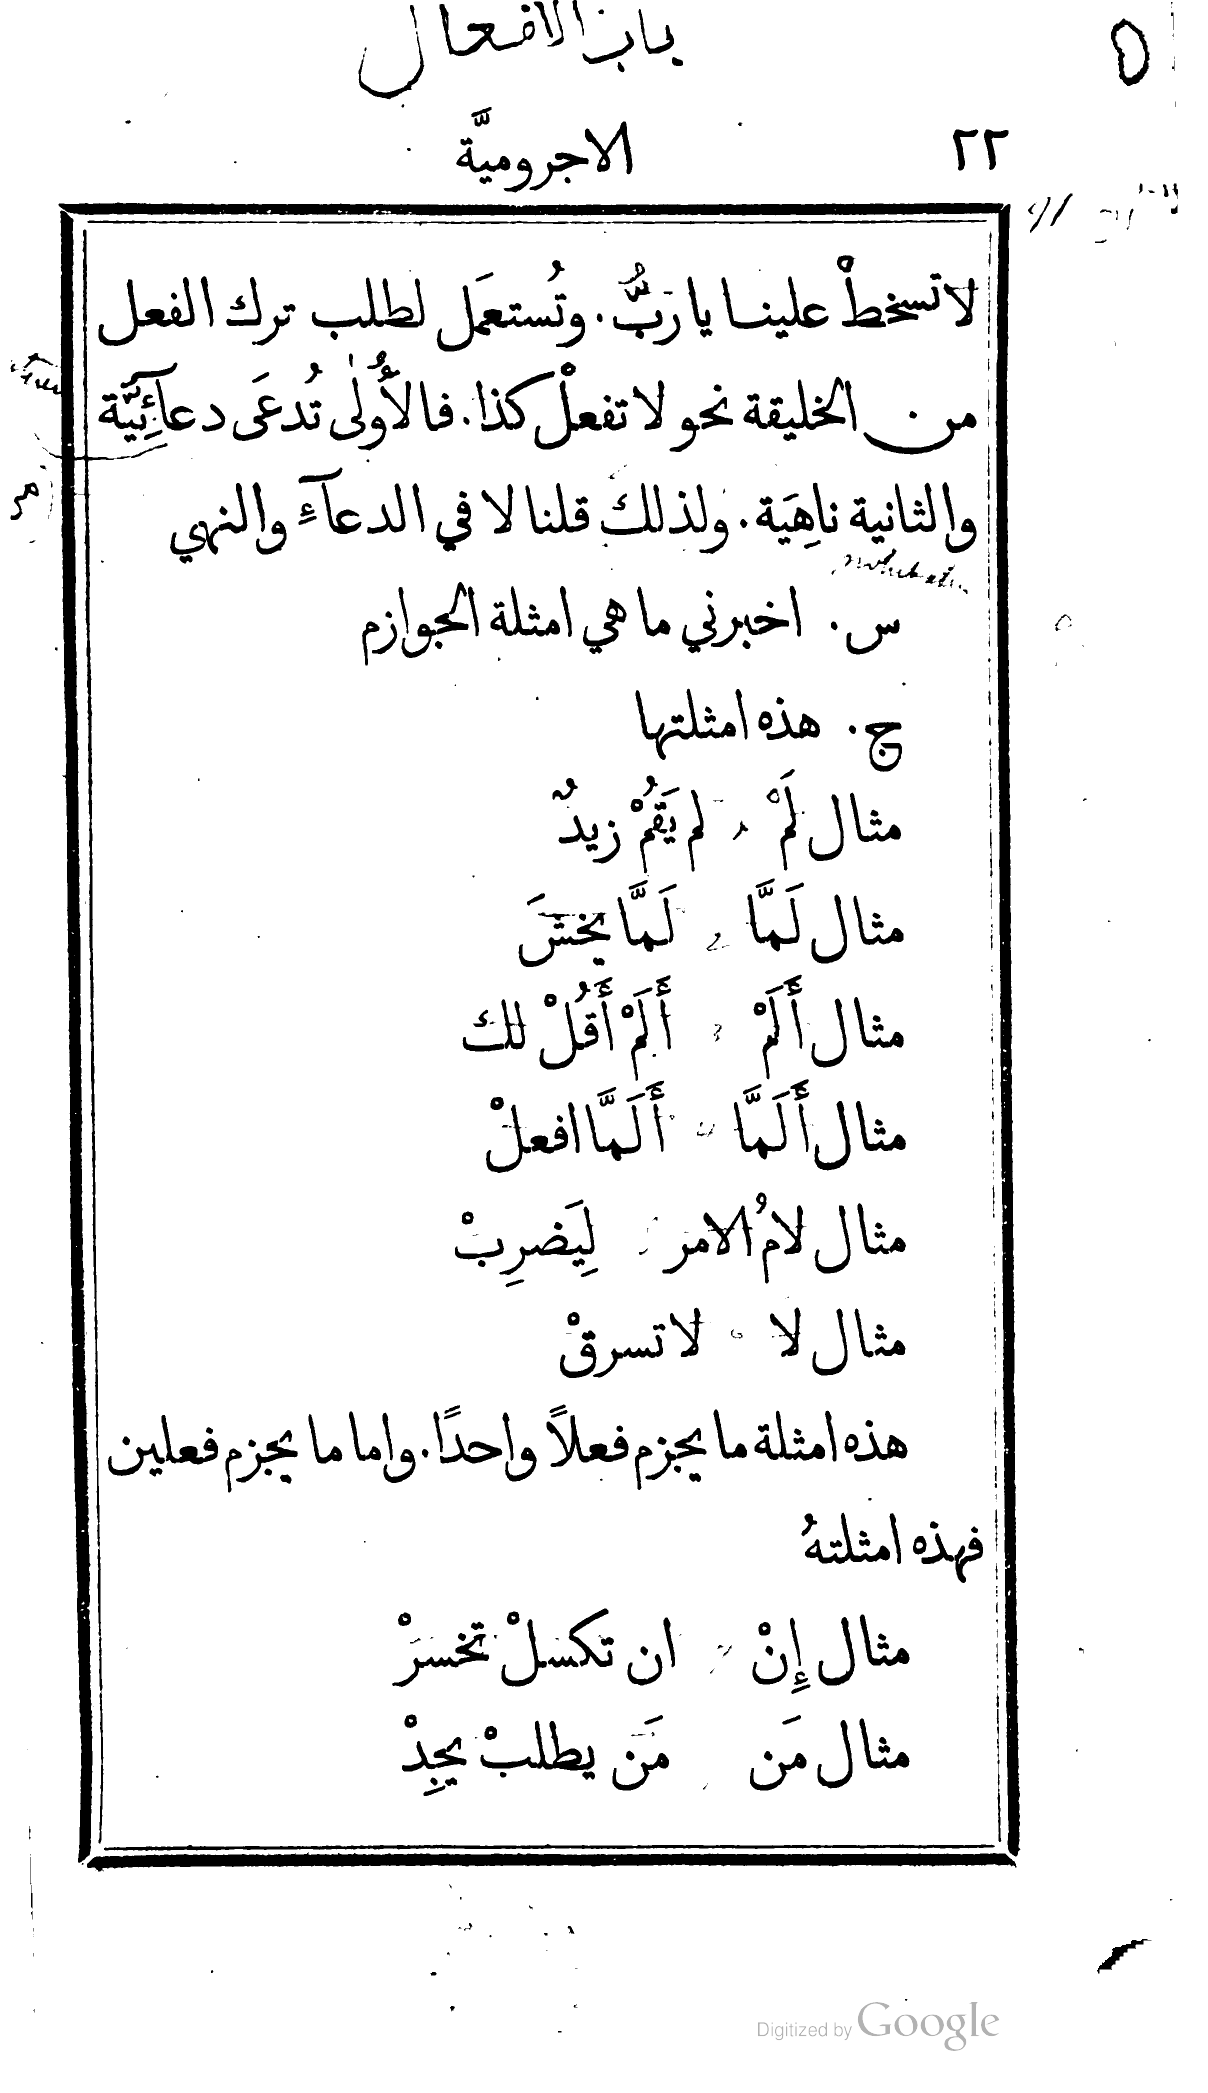 باب الافعال
٢٢ الاجروميَّة
لا تسخطْ علينا يا رَبُّ. وتُستعمَل لطلب ترك الفعل
من الخليقة نحو لا تفعلْ كذا. فالأُولٰى تُدعَى دعآئِيَّة
والثانية ناهِيَة. ولذلكَ قلنا لا في الدعآءِ والنهي
س. اخبرني ما هي امثلة الجوازم
ج. هذه امثلتها
مثال لَمْ لم يَقُمْ زيدٌ
مثال لَمَّا لَمَّا يخشَ
مثال أَلَمْ أَلَمْ أَقُلْ لك
مثال أَلَمَّا أَلَمَّا افعلْ
مثال لامُ الامر لِيَضرِبْ
مثال لا لا تسرقْ
هذه امثلة ما يجزم فعلاً واحدًا. واما ما يجزم فعلين
فهذه امثلتهُ
مثال إِنْ ان تكسلْ تخسرْ
مثال مَن مَن يطلبْ يجِدْ
Digitized by Google